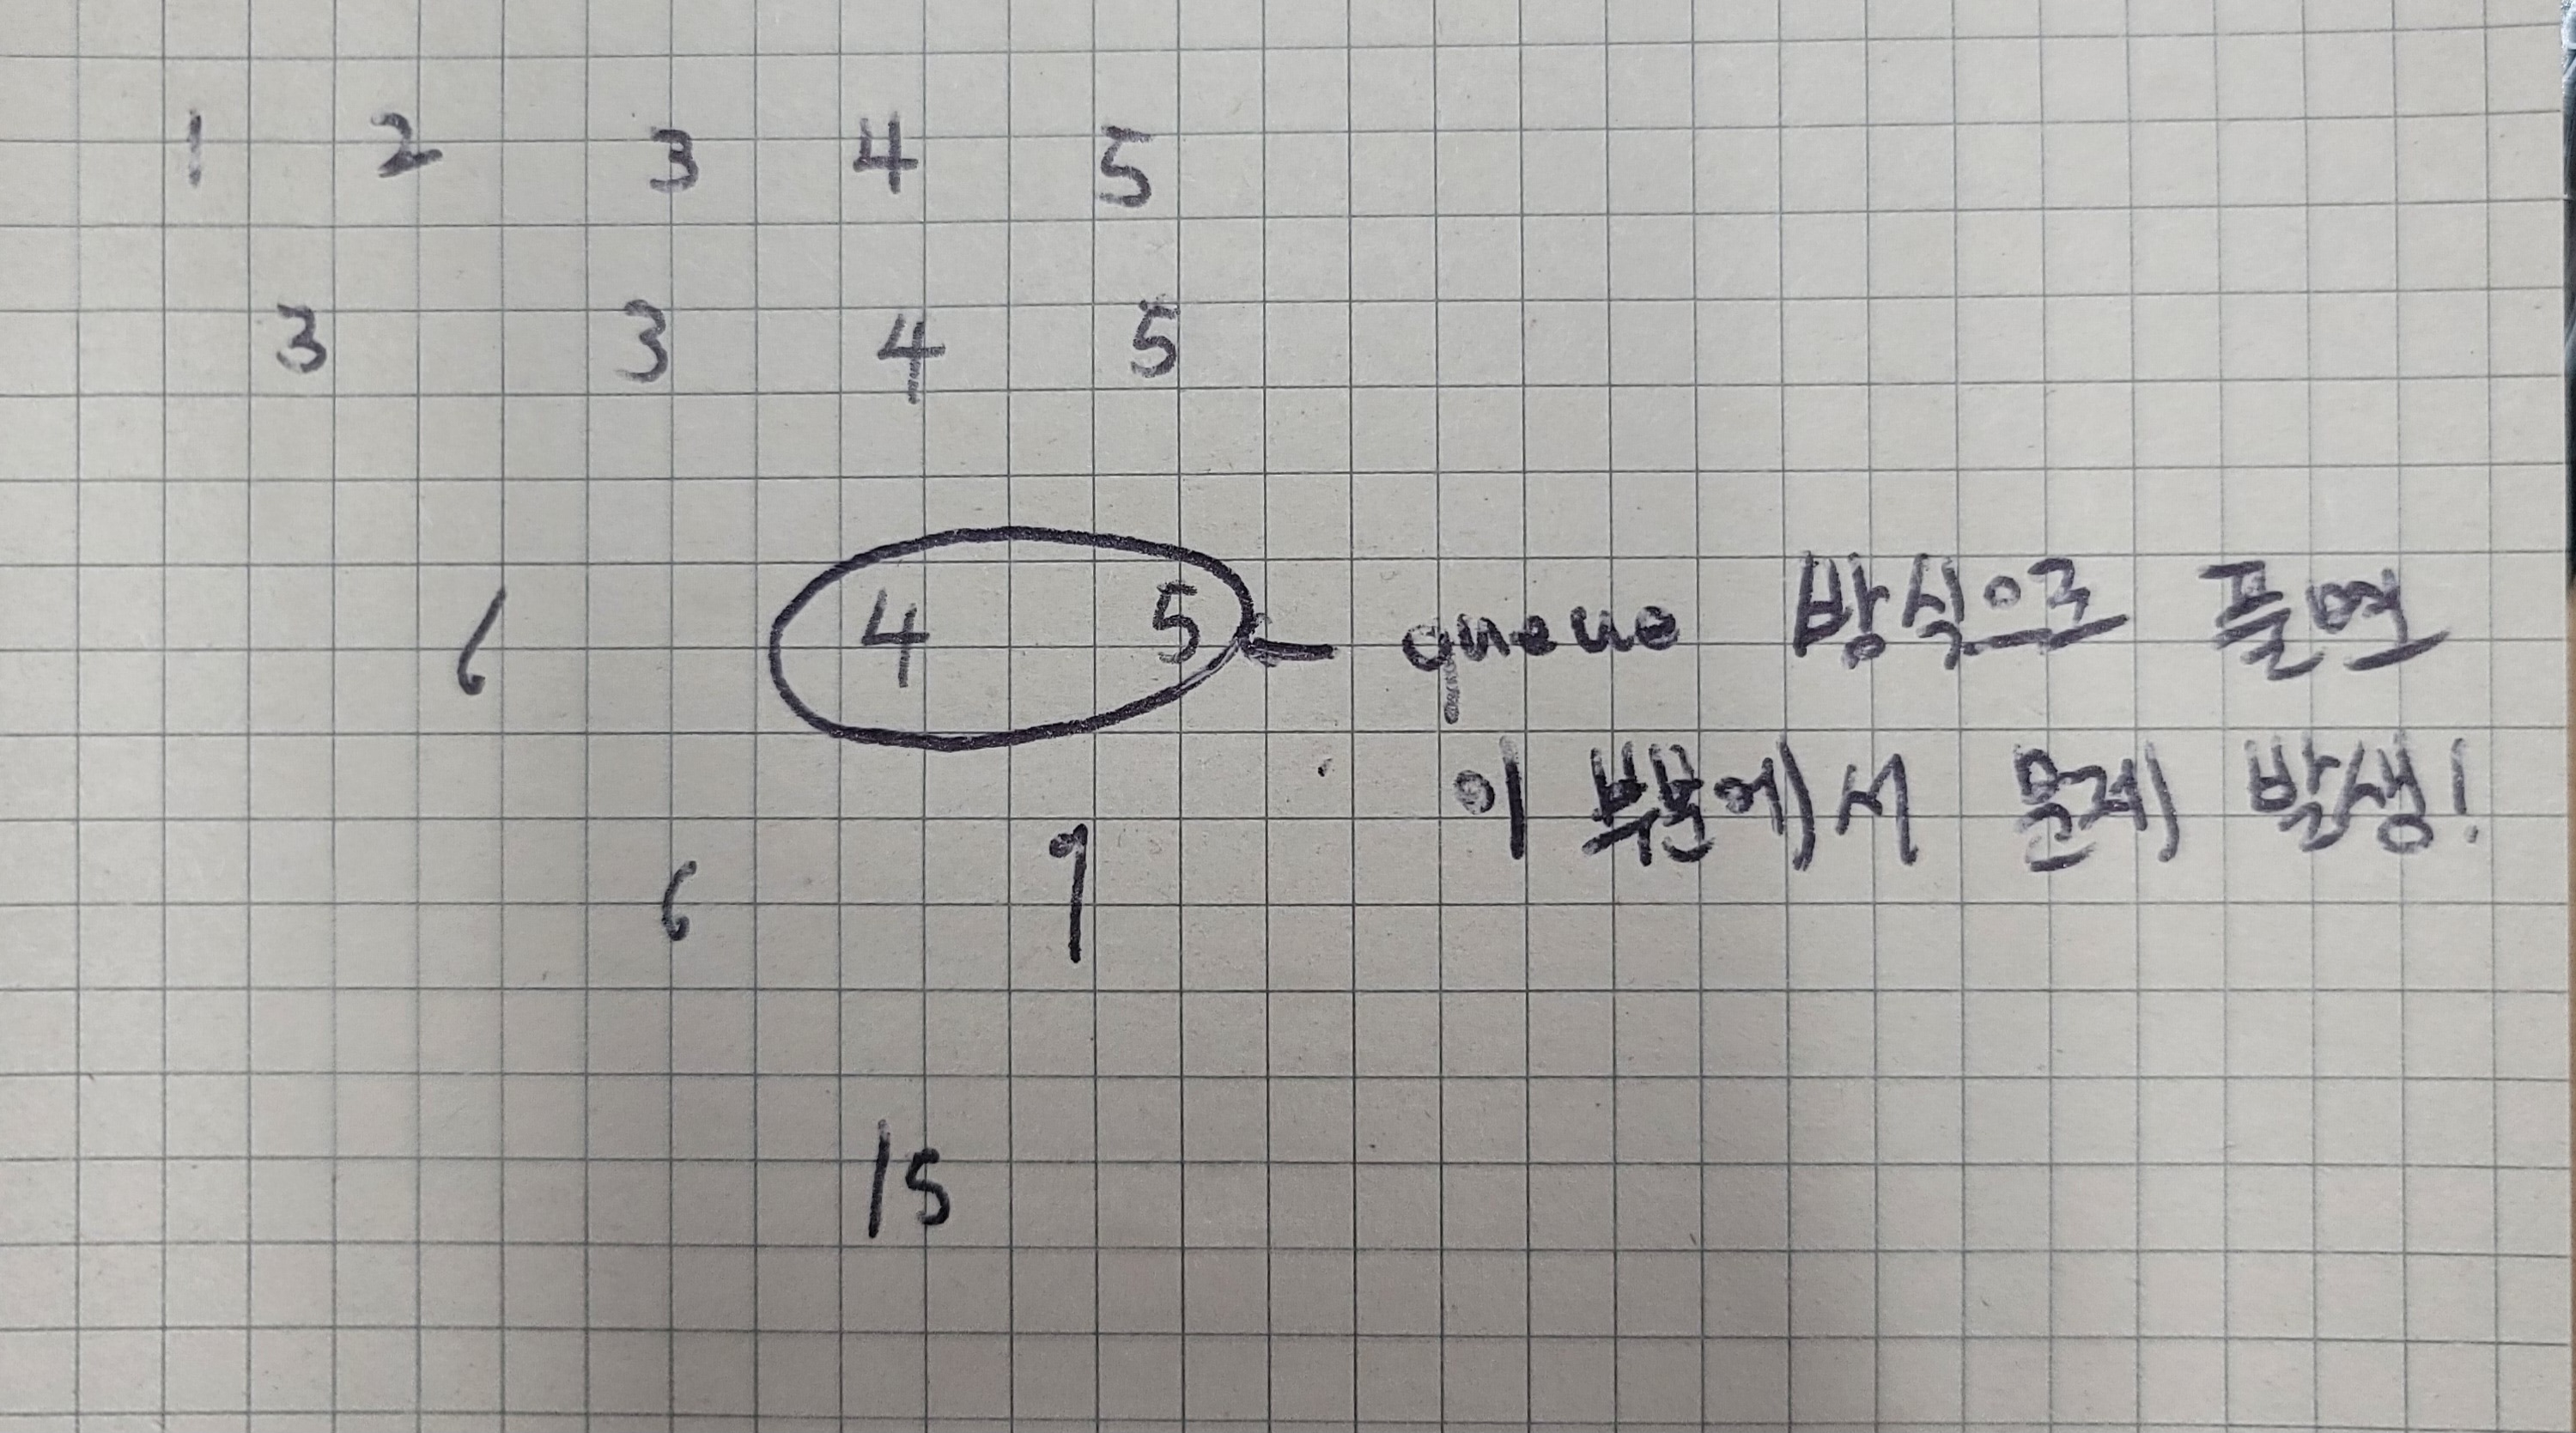 1 2 3 4 5
3 3 4 5
6 4 5 queue 방식으로 풀면
이 부분에서 문제 발생!
6 9
15